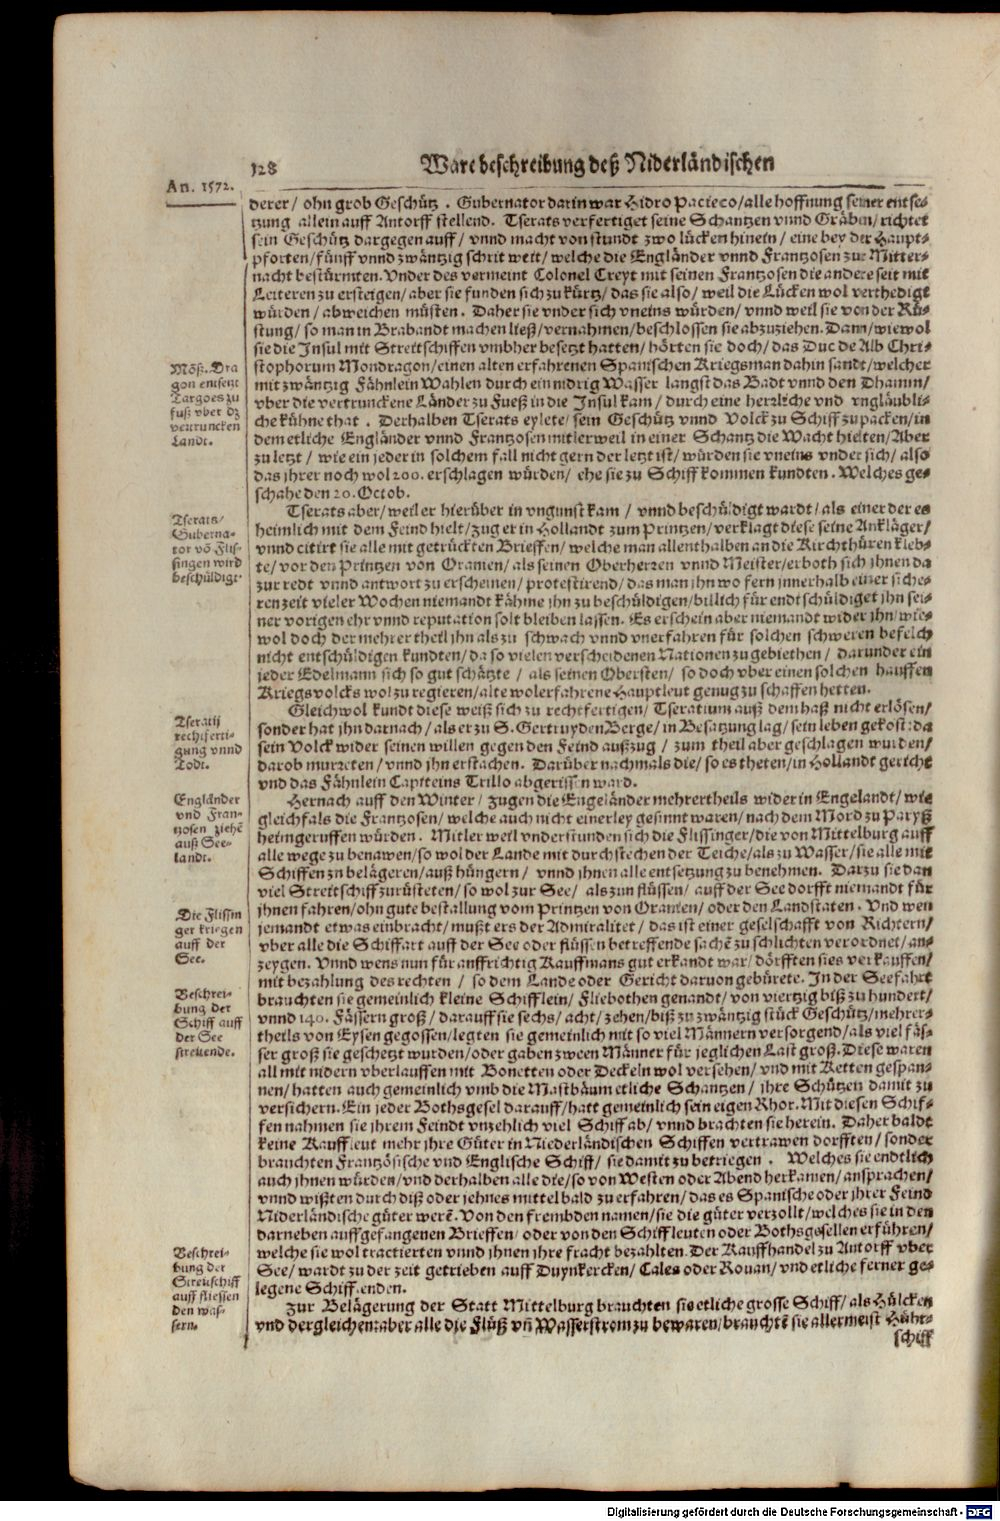 128 Ware beschreibung deß Niderländischen
An. 1572.
derer/ ohn grob Geschütz. Gubernator darin war Hidro Pacieco/ alle hoffnung seiner entse-
tzung allein auff Antorff stellend. Tserats verfertiget seine Schantzen vnnd Gräben/ richtet
sein Geschütz dargegen auff/ vnnd macht von stundt zwo lücken hinein/ eine bey der Haupt-
pforten/ fünff vnnd zwäntzig schrit weit/ welche die Engländer vnnd Frantzosen zur Mitter-
nacht bestürmten. Vnder des vermeint Colonel Creyt mit seinen Frantzosen die andere seit mit
Leiteren zu ersteigen/ aber sie funden sich zu kürtz/ das sie also/ weil die Lücken wol verthedigt
würden/ abweichen müsten. Daher sie vnder sich vneins würden/ vnnd weil sie von der Rü-
stung/ so man in Brabandt machen ließ/ vernahmen/ beschlossen sie abzuziehen. Dann/ wiewol
sie die Insul mit Streitschiffen vmbher besetzt hatten/ hörten sie doch/ das Duc de Alb Chri-
stophorum Mondragon/ einen alten erfahrenen Spanischen Kriegsman dahin sandt/ welcher
mit zwäntzig Fähnlein Wahlen durch ein nidrig Wasser langst das Badt vnnd den Dhamm/
vber die vertrunckene Länder zu Fueß in die Insul kam/ durch eine hertzliche vnd vngläubli-
che kühne that. Derhalben Tserats eylete/ sein Geschütz vnnd Volck zu Schiff zu packen/ in
dem etliche Engländer vnnd Frantzosen mitlerweil in einer Schantz die Wacht hielten/ Aber
zu letzt/ wie ein jeder in solchem fall nicht gern der letzt ist/ würden sie vneins vnder sich/ also
das jhrer noch wol 200. erschlagen würden/ ehe sie zu Schiff kommen kundten. Welches ge-
schahe den 20. Octob.
Möß. Dra
gon entsetzt
Targoes zu
fuß vber dz
vertruncken
Landt.
Tserats aber/ weil er hierüber in vngunst kam/ vnnd beschüldigt wardt/ als einer der es
heimlich mit dem Feind hielt/ zug er in Hollandt zum Printzen/ verklagt diese seine Ankläger/
vnnd citirt sie alle mit getrückten Brieffen/ welche man allenthalben an die Kirchthüren kleb-
te/ vor den Printzen von Oranien/ als seinen Oberherren vnnd Meister/ erboth sich jhnen da
zur redt vnnd antwort zu erscheinen/ protestirend/ das man jhn wo fern innerhalb einer siche-
ren zeit vieler Wochen niemandt kähme jhn zu beschüldigen/ billich für endtschüldiget jhn sei-
ner vorigen ehr vnnd reputation solt bleiben lassen. Es erschein aber niemandt wider jhn/ wie-
wol doch der mehrer theil jhn als zu schwach vnnd vnerfahren für solchen schweren befelch
nicht entschüldigen kundten/ da so vielen verscheidenen Nationen zu gebiethen/ darunder ein
jeder Edelmann sich so gut schätzte/ als seinen Obersten/ so doch vber einen solchen hauffen
Kriegsvolcks wol zu regieren/ alte wolerfahrene Hauptleut genug zu schaffen hetten.
Tserats/
Guberna-
tor võ Flis-
singen wird
beschüldigt.
Gleichwol kundt diese weiß sich zu rechtfertigen/ Tseratium auß dem haß nicht erlösen/
sonder hat jhn darnach/ als er zu S. Gertruyden Berge/ in Besatzung lag/ sein leben gekost: da
sein Volck wider seinen willen gegen den Feind außzug/ zum theil aber geschlagen wurden/
darob murreten/ vnnd jhn erstachen. Darüber nachmals die/ so es theten/ in Hollandt gericht
vnd das Fähnlein Capiteins Trillo abgerissen ward.
Tseratij
rechtferti-
gung vnnd
Todt.
Hernach auff den Winter/ zugen die Engeländer mehrertheils wider in Engelandt/ wie
gleichfals die Frantzosen/ welche auch nicht einerley gesinnt waren/ nach dem Mord zu Paryß
heimgeruffen würden. Mitler weil vnderstunden sich die Flissinger/ die von Mittelburg auff
alle wege zu benawen/ so wol der Lande mit durchstechen der Teiche/ als zu Wasser/ sie alle mit
Schiffen zu belägeren/ auß hüngern/ vnnd jhnen alle entsetzung zu benehmen. Darzu sie dan
viel Streitschiff zurüsteten/ so wol zur See/ als zun flüssen/ auff der See dorfft niemandt für
jhnen fahren/ ohn gute bestallung vom Printzen von Oranien/ oder den Landstaten. Vnd wen
jemandt etwas einbracht/ mußt ers der Admiralitet/ das ist einer geselschafft von Richtern/
vber alle die Schiffart auff der See oder flüssen betreffende sachẽ zu schlichten verordnet/ an-
zeygen. Vnnd wens nun für auffrichtig Kauffmans gut erkandt war/ dörfften sies verkauffen/
mit bezahlung des rechten/ so dem Lande oder Gericht daruon gebürete. In der Seefahrt
brauchten sie gemeinlich kleine Schifflein/ Fliebothen genandt/ von viertzig biß zu hundert/
vnnd 140. Fässern groß/ darauff sie sechs/ acht/ zehen/ biß zu zwäntzig stück Geschütz/ mehrer-
theils von Eysen gegossen/ legten sie gemeinlich mit so viel Männern versorgend/ als viel fäs-
ser groß sie geschetzt wurden/ oder gaben zween Männer für jeglichen Last groß. Diese waren
all mit nidern vberlauffen mit Bonetten oder Deckeln wol versehen/ vnd mit Ketten gespan-
nen/ hatten auch gemeinlich vmb die Mastbäum etliche Schantzen/ jhre Schützen damit zu
versichern. Ein jeder Bothsgesel darauff/ hatt gemeinlich sein eigen Rhor. Mit diesen Schif-
fen nahmen sie jhrem Feindt vnzehlich viel Schiff ab/ vnnd brachten sie herein. Daher baldt
keine Kauffleut mehr jhre Güter in Niederländischen Schiffen vertrawen dorfften/ sonder
brauchten Frantzösische vnd Englische Schiff/ sie damit zu betriegen. Welches sie endtlich
auch jhnen würden/ vnd derhalben alle die/ so von Westen oder Abend herkamen/ ansprachen/
vnnd wißten durch diß oder jehnes mittel bald zu erfahren/ das es Spanische oder jhrer Feind
Niderländische güter werẽ. Von den frembden namen/ sie die güter verzollt/ welches sie in den
darneben auffgefangenen Brieffen/ oder von den Schiffleuten oder Bothsgesellen erführen/
welche sie wol tractierten vnnd jhnen jhre fracht bezahlten. Der Kauffhandel zu Antorff vber
See/ wardt zu der zeit getrieben auff Duynkercken/ Cales oder Rouan/ vnd etliche ferner ge-
legene Schiffenden.
Engländer
vnd Fran-
tzosen ziehẽ
auß See-
landt.
Die Flissin
ger kriegen
auff der
See.
Beschrei-
bung der
Schiff auff
der See
streitende.
Zur Belägerung der Statt Mittelburg brauchten sie etliche grosse Schiff/ als Hülcken
vnd dergleichen: aber alle die Flüß vñ Wasserstrom zu bewaren/ brauchtẽ sie allermeist Hüht-
schiff
Beschrei-
bung der
Streitschiff
auff fliessen
den was-
sern.
Digitalisierung gefördert durch die Deutsche Forschungsgemeinschaft - DFG